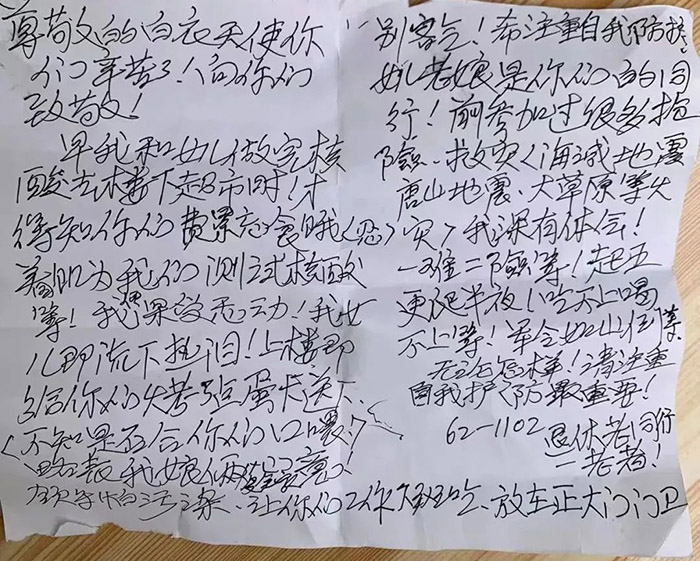 尊敬的白衣天使你
们辛苦了！向你们
致敬！
早我和女儿做完核
酸去楼下超市时！才
得知你们费累忘食哦〈忍〉
着肌为我们测试核酸
等！我深激动！我女
儿即流下热泪！上楼即
给你们烤了蛋卡送下、
〈不知是否合你们口味！〉
略表我娘俩们之意！
让你们工作人员吃、放在正大门门卫
别客气！希注重自我防护
她老娘是你们的同
行！前参加过很多抢
险、救灾〈海城地震
唐山地震、大草原等火
灾〉我深有体会！
一难二险等！起五
更爬半夜！吃不上喝
不上等！军令如山倒等
无论怎样！请注重
自我护防最重要！
62-1102 退休老同行
一老者！